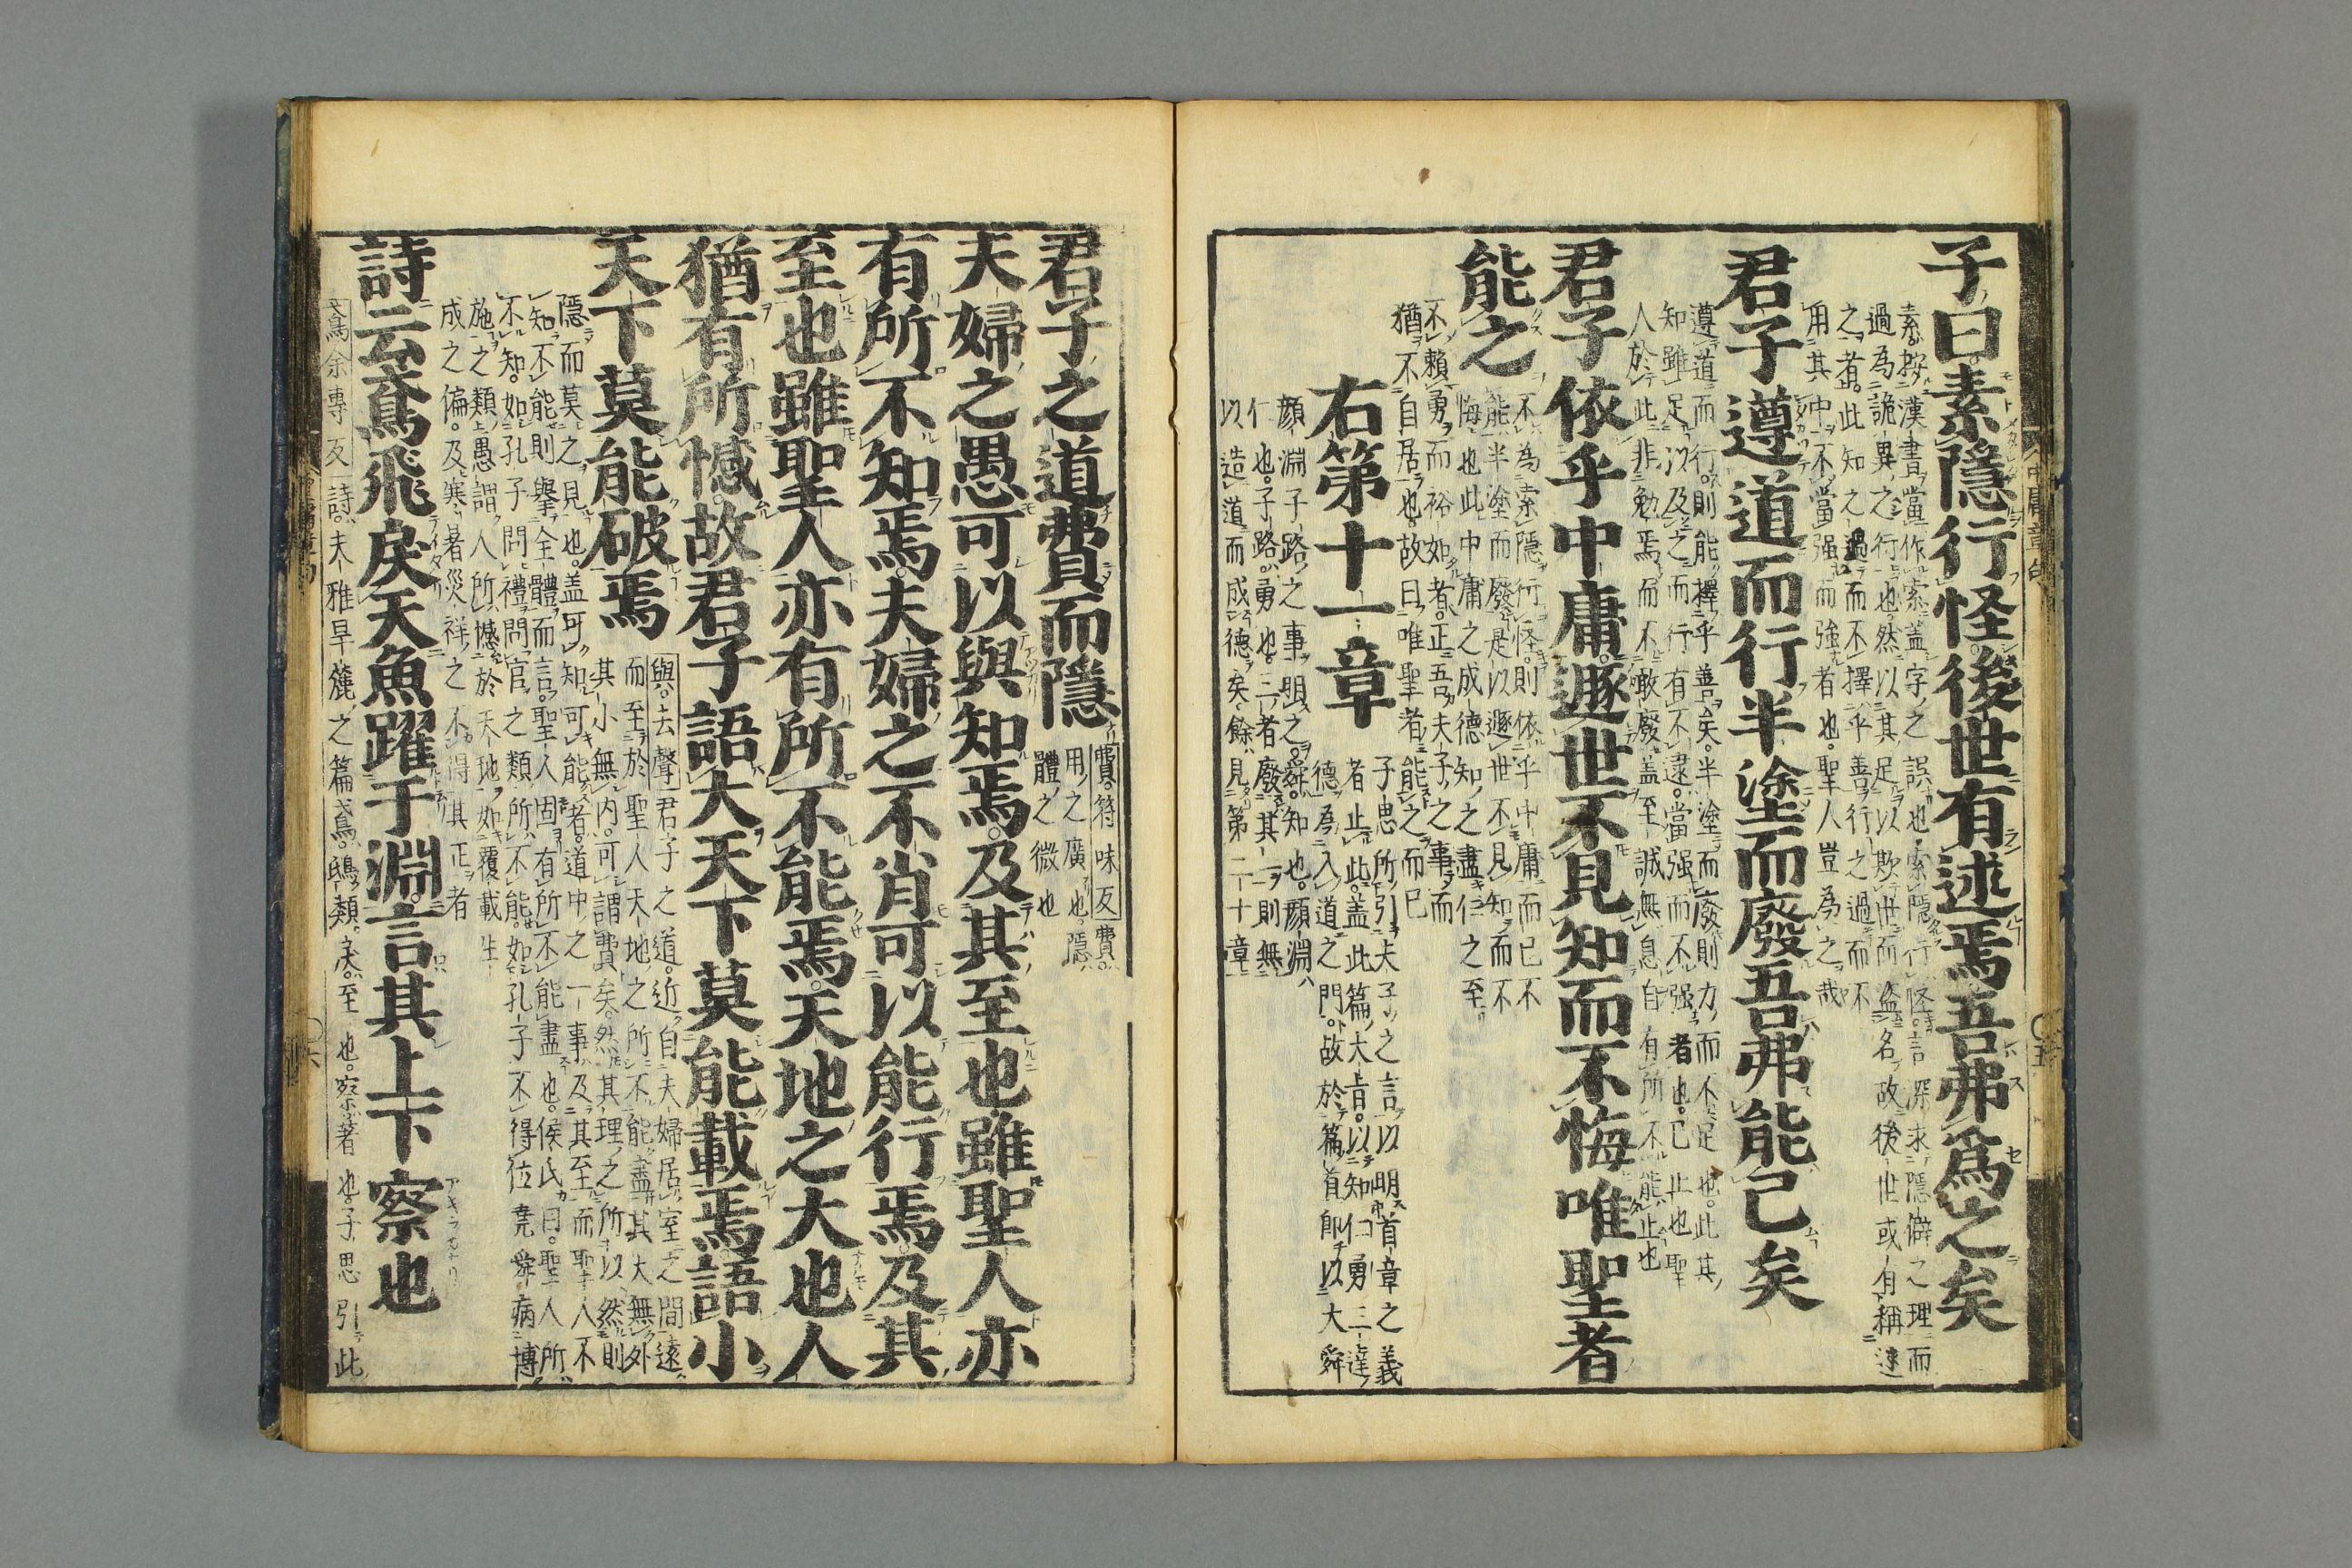 子曰素隱行怪後世有述焉吾弗爲之矣
素按漢書當作索蓋字之誤也索隱行怪言深求隱僻之理而
過爲詭異之行也然以其足以欺世而盜名故後世或有稱述
之者此知之過而不擇乎善行之過而不
用其中不當强而強者也聖人豈爲之哉
君子遵道而行半塗而廢吾弗能已矣
遵道而行則能擇乎善矣半塗而廢則力而不足也此其
知雖足以及之而行有不逮當强而不强者也已止也聖
人於此非勉焉而不敢廢蓋至誠無息自有所不能止也
君子依乎中庸遯世不見知而不悔唯聖者
能之
不爲索隱行怪則依乎中庸而已不
能半塗而廢是以遯世不見知而不
悔也此中庸之成德知之盡仁之至
不賴勇而裕如者正吾夫子之事而
猶不自居也故曰唯聖者能之而已
右第十一章
子思所引夫子之言以明首章之義
者止此蓋此篇大旨以知仁勇三達
德爲入道之門故於篇首即以大舜
顏淵子路之事明之舜知也顏淵
仁也子路勇也三者廢其一則無
以造道而成德矣餘見第二十章
君子之道費而隱
費符味反費
用之廣也隱
體之微也
夫婦之愚可以與知焉及其至也雖聖人亦
有所不知焉夫婦之不肖可以能行焉及其
至也雖聖人亦有所不能焉天地之大也人
猶有所憾故君子語大天下莫能載焉語小
天下莫能破焉
與去聲君子之道近自夫婦居室之間遠
而至於聖人天地之所不能盡其大無外
其小無內可謂費矣然其理之所以然則
隱而莫之見也蓋可知可能者道中之一事及其至而聖人不
知不能則舉全體而言聖人固有所不能盡也侯氏曰聖人所
不知如孔子問禮問官之類所不能如孔子不得位堯舜病博
施之類愚謂人所憾於天地如覆載生
成之偏及寒暑災祥之不得其正者
詩云鳶飛戾天魚躍于淵言其上下察也
鳶余專反詩大雅旱麓之篇鳶鴟類戾至也察著也子思引此